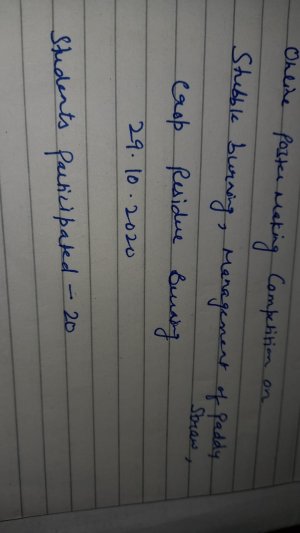 Online Poster Making Competition on
Stubble burning, Management of Paddy
Straw,
Crop Residue Burning
29.10.2020
Students Participated - 20